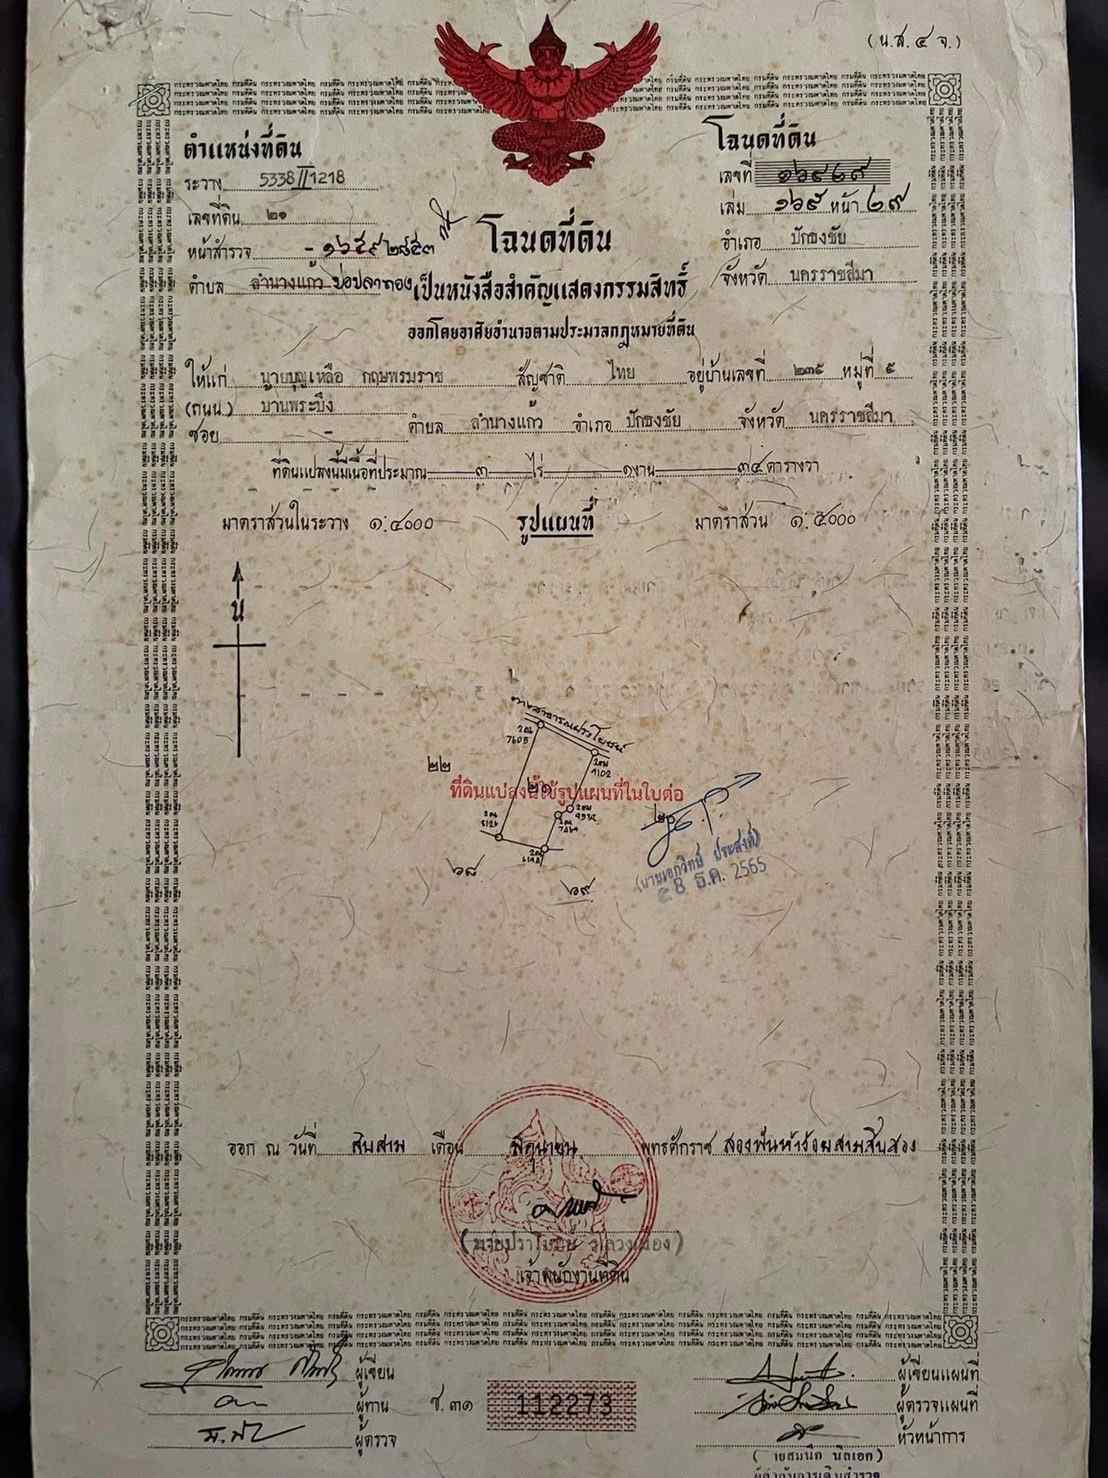 (น.ส. ๔ จ.)
ตำแหน่งที่ดิน
ระวาง 5338 II 1218
เลขที่ดิน ๒๑
หน้าสำรวจ - ๑๖๕๙ ๒๘๕๓
ตำบล ลำนางแก้ว บ่อปลาทอง
โฉนดที่ดิน
เลขที่
เล่ม ๑๖๙ หน้า ๒๙
อำเภอ ปักธงชัย
จังหวัด นครราชสีมา
โฉนดที่ดิน
เป็นหนังสือสำคัญแสดงกรรมสิทธิ์
ออกโดยอาศัยอำนาจตามประมวลกฎหมายที่ดิน
ให้แก่ นายบุญเหลือ กฤษพรมราช สัญชาติ ไทย อยู่บ้านเลขที่ ๒๓๕ หมู่ที่ ๕
(ถนน) บ้านพระบึง
ซอย - ตำบล ลำนางแก้ว อำเภอ ปักธงชัย จังหวัด นครราชสีมา
ที่ดินแปลงนี้มีเนื้อที่ประมาณ ๓ ไร่ ๑ งาน ๓๔ ตารางวา
มาตราส่วนในระวาง ๑:๔๐๐๐ รูปแผนที่ มาตราส่วน ๑:๕๐๐๐
น
ทางสาธารณประโยชน์
๒๒
๒๑
ที่ดินแปลงนี้ใช้รูปแผนที่ในใบต่อ
๒๐
๖๘
๖๙
(นายเอกวิทย์ ประสงค์)
28 ธ.ค. 2565
ออก ณ วันที่ สิบสาม เดือน มิถุนายน พุทธศักราช สองพันห้าร้อยสามสิบสอง
เจ้าพนักงานที่ดิน
ผู้เขียน
ผู้ทาน
ผู้ตรวจ
ช. ๓๑ 112273
ผู้เขียนแผนที่
ผู้ตรวจแผนที่
หัวหน้าการ